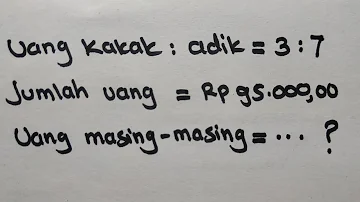 Uang Kakak : adik = 3 : 7
Jumlah uang = Rp 95.000,00
Uang masing-masing = ... ?